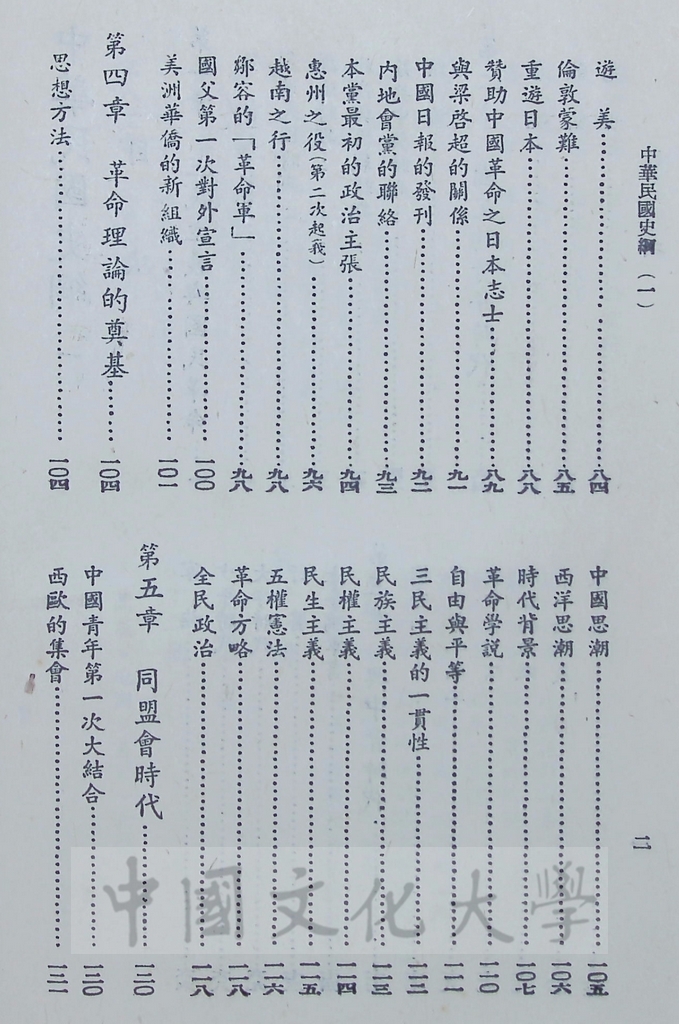 中華民國史綱（一）
二
遊　美……八四
倫敦蒙難……八五
重遊日本……八八
贊助中國革命之日本志士……八九
與梁啓超的關係……九一
中國日報的發刊……九二
內地會黨的聯絡……九三
本黨最初的政治主張……九四
惠州之役（第二次起義）……九六
越南之行……九八
鄒容的「革命軍」……九八
國父第一次對外宣言……一〇〇
美洲華僑的新組織……一〇一
第四章　革命理論的奠基……一〇四
思想方法……一〇四
中國思潮……一〇五
西洋思潮……一〇六
時代背景……一〇七
革命學說……一一〇
自由與平等……一一一
三民主義的一貫性……一一二
民族主義……一一三
民權主義……一一四
民生主義……一一五
五權憲法……一一六
革命方略……一一八
全民政治……一一八
第五章　同盟會時代……一二〇
中國青年第一次大結合……一二〇
西歐的集會……一二一
中國文化大學